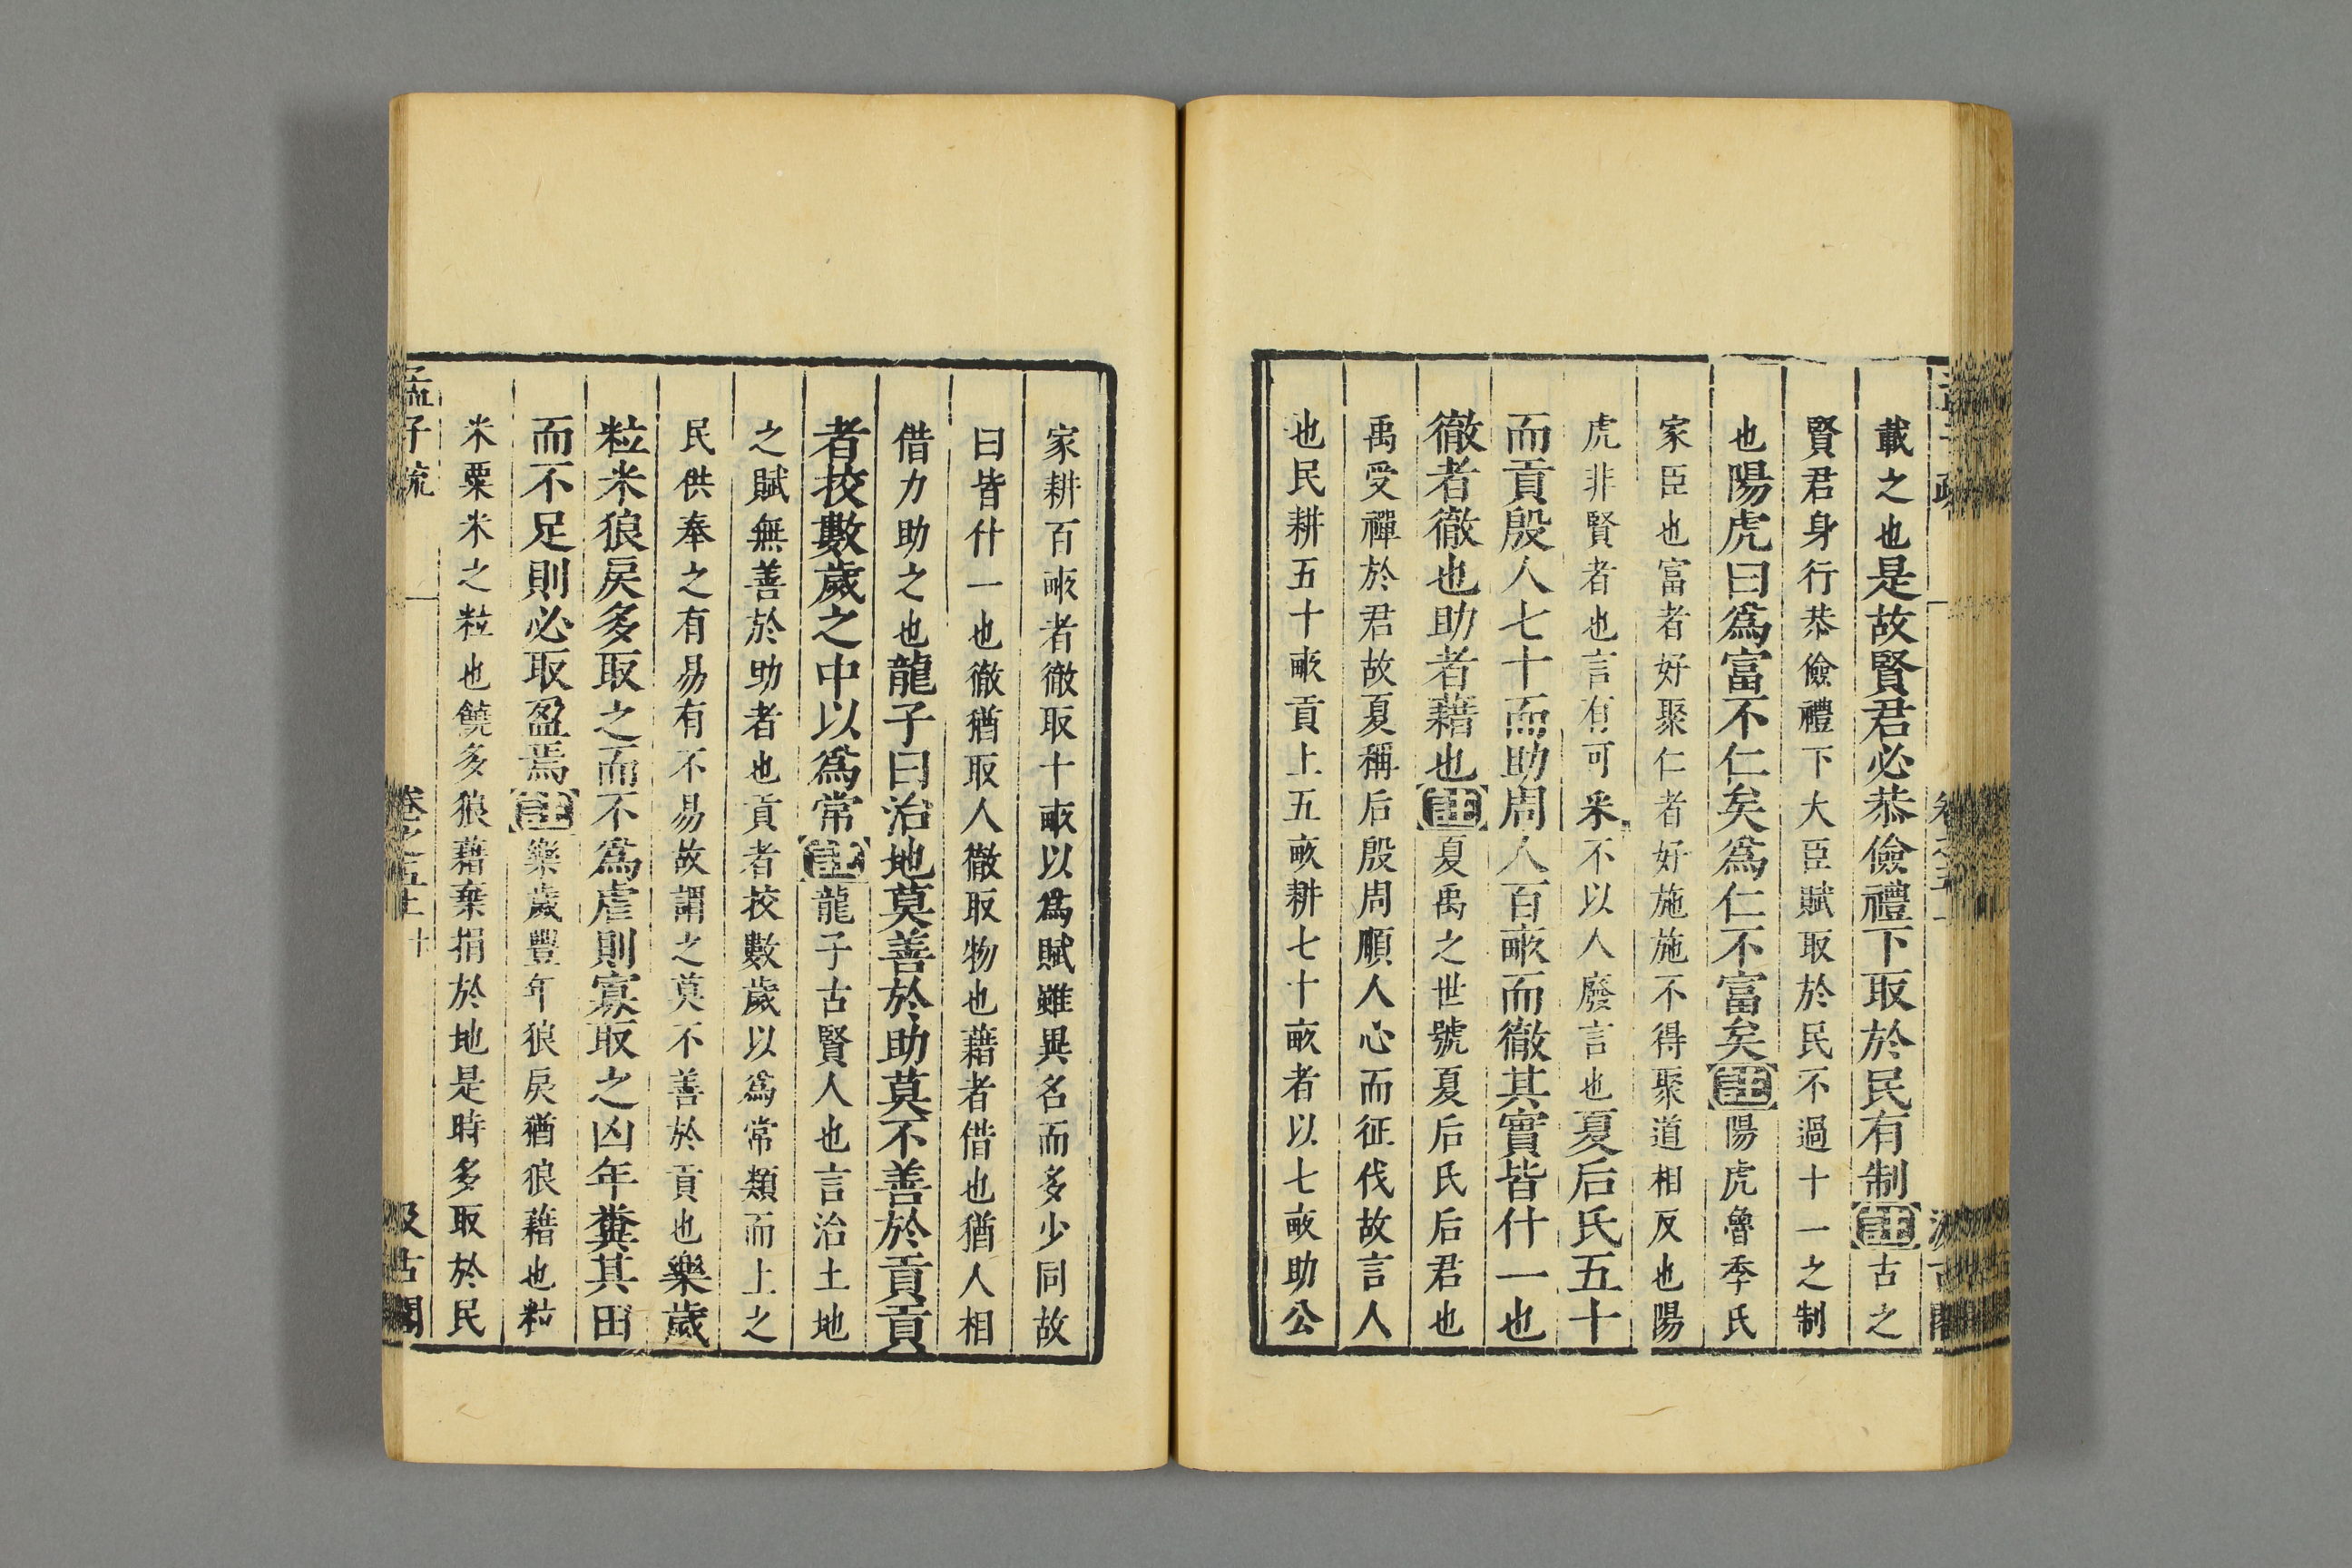 載之也是故賢君必恭儉禮下取於民有制註古之
賢君身行恭儉禮下大臣賦取於民不過十一之制
也陽虎曰爲富不仁矣爲仁不富矣註陽虎魯季氏
家臣也富者好聚仁者好施施不得聚道相反也陽
虎非賢者也言有可采不以人廢言也夏后氏五十
而貢殷人七十而助周人百畝而徹其實皆什一也
徹者徹也助者藉也註夏禹之世號夏后氏后君也
禹受禪於君故夏稱后殷周順人心而征伐故言人
也民耕五十畝貢上五畝耕七十畝者以七畝助公
家耕百畝者徹取十畝以爲賦雖異名而多少同故
曰皆什一也徹猶取人徹取物也藉者借也猶人相
借力助之也龍子曰治地莫善於助莫不善於貢貢
者挍數歲之中以爲常註龍子古賢人也言治土地
之賦無善於助者也貢者挍數歲以爲常類而上之
民供奉之有易有不易故謂之莫不善於貢也樂歲
粒米狼戾多取之而不爲虐則寡取之凶年糞其田
而不足則必取盈焉註樂歲豐年狼戾猶狼藉也粒
米粟米之粒也饒多狼藉棄捐於地是時多取於民
孟子疏 卷之五上 十 汲古閣